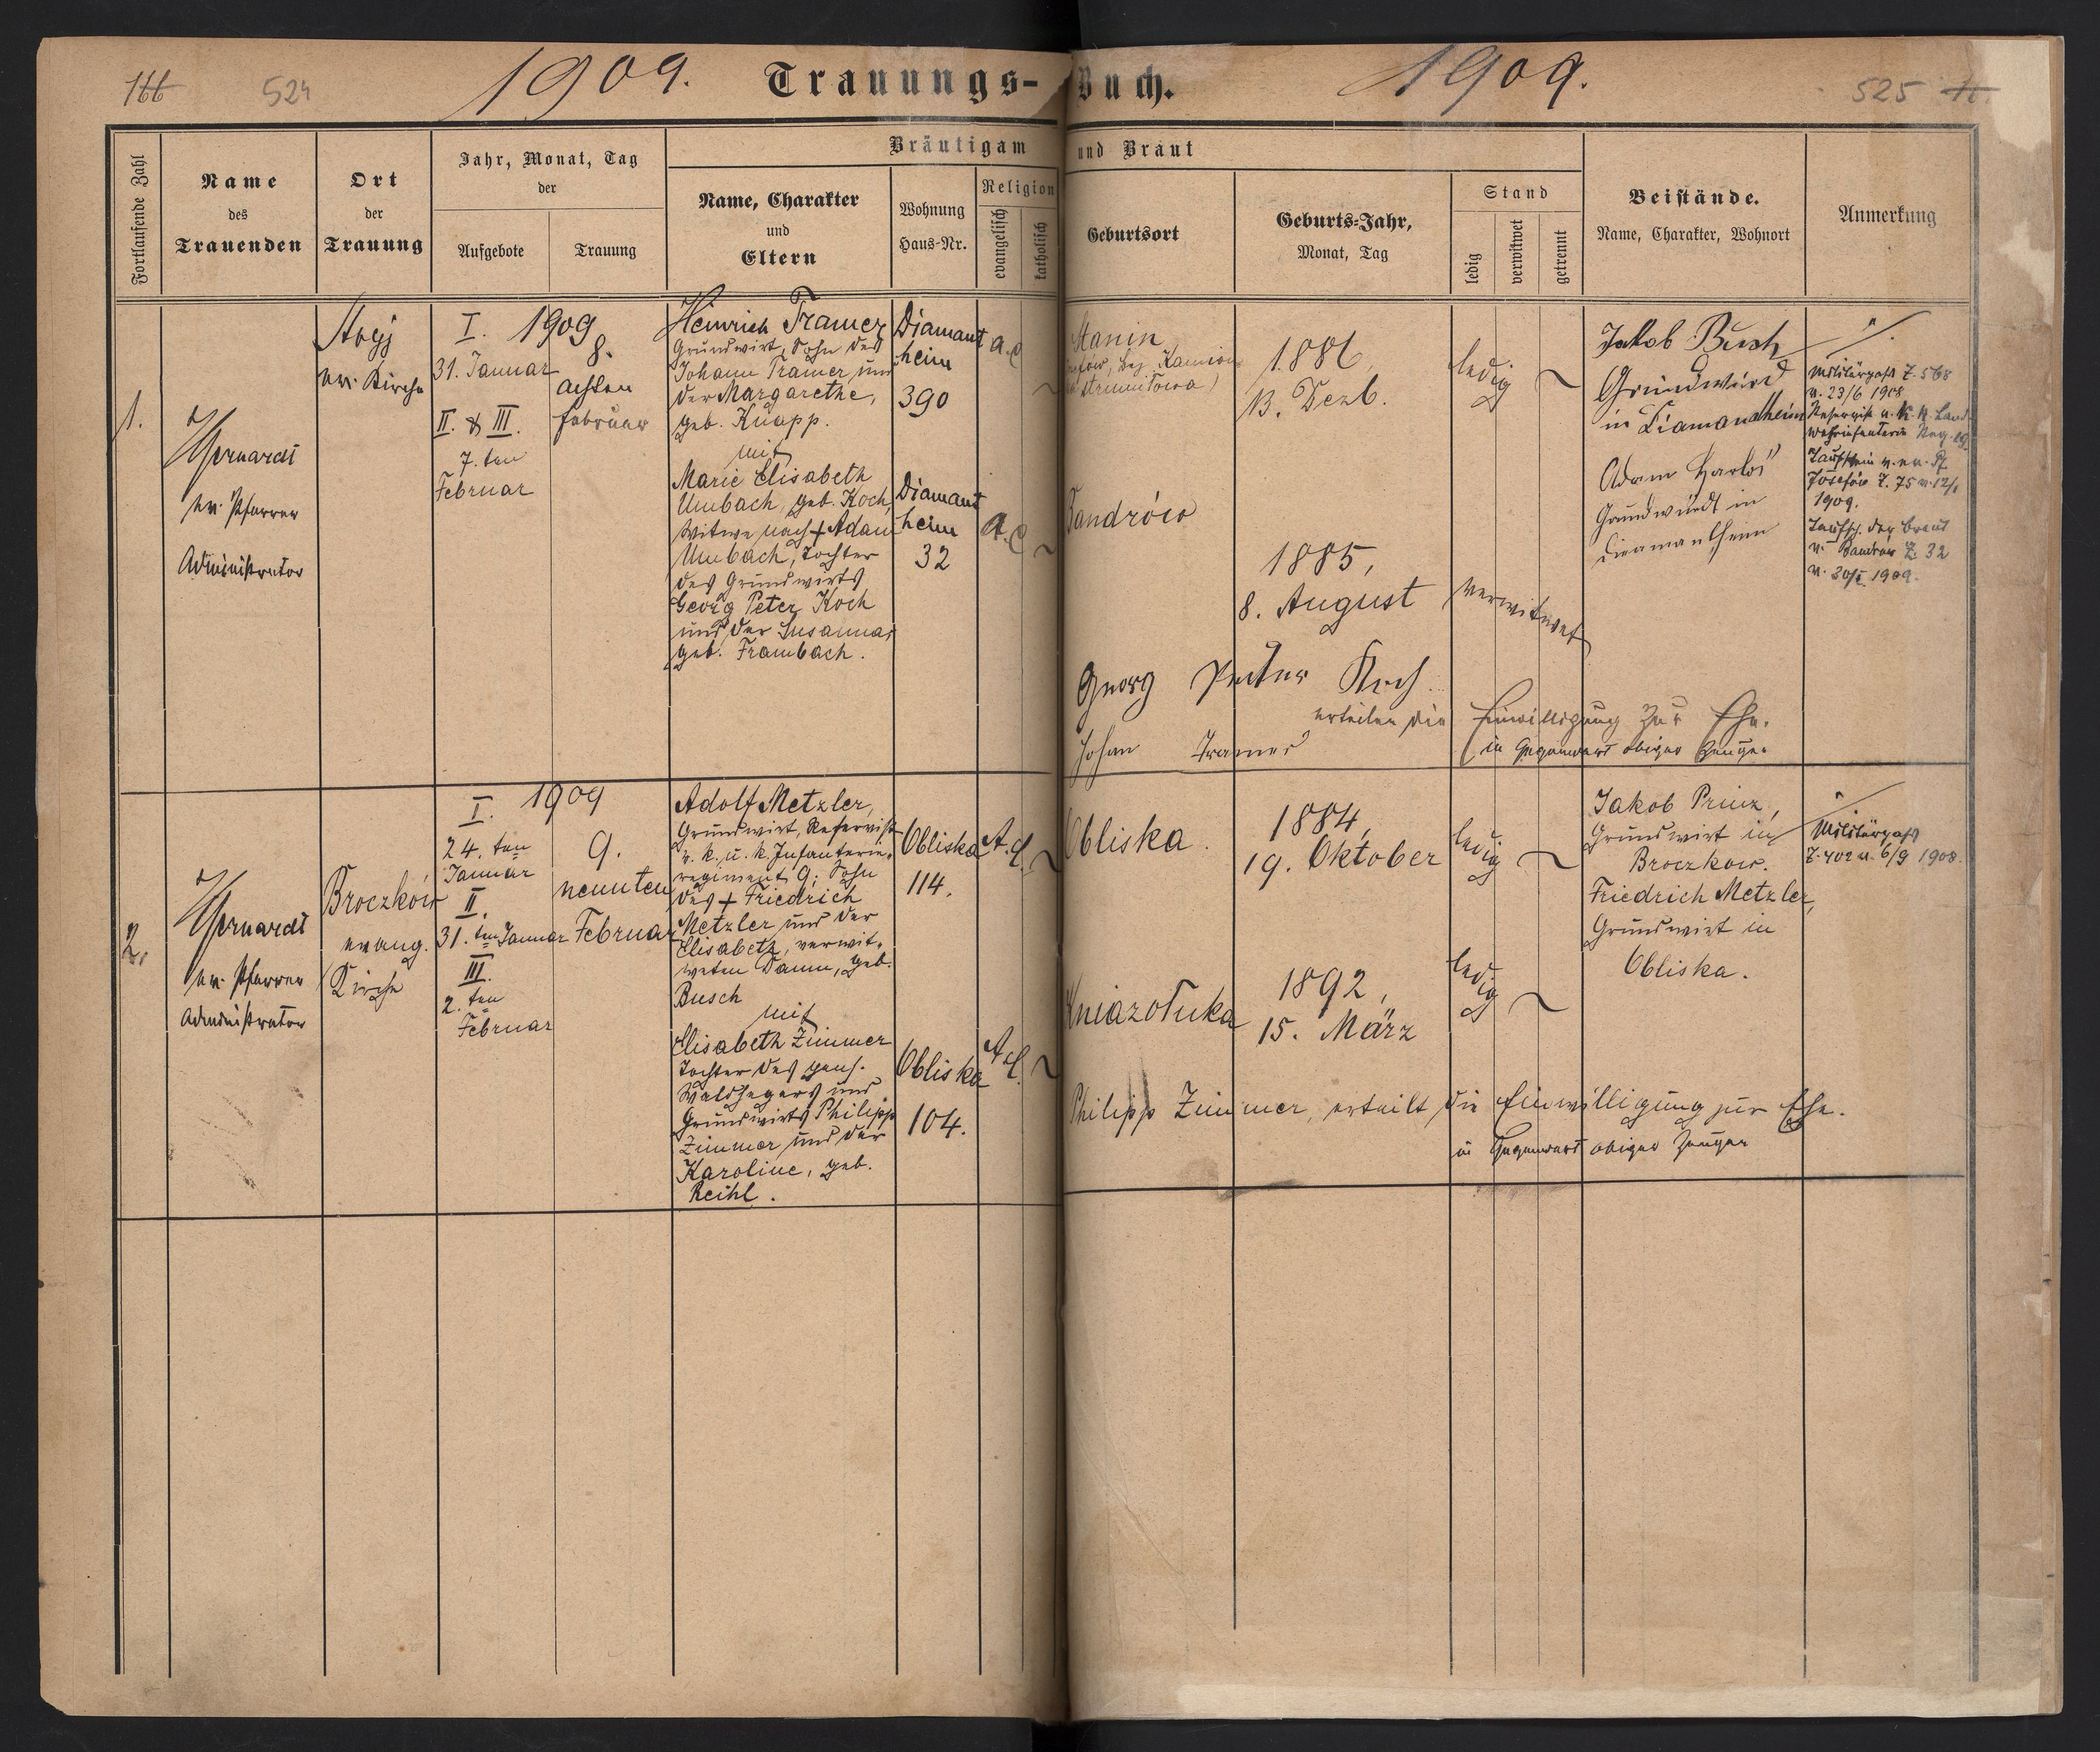 166 524
1909. Trauungs-Buch. 1909.
525
Fortlaufende Zahl
Name
des
Trauenden
Ort
der
Trauung
Jahr, Monat, Tag
der
Aufgebote
Trauung
Bräutigam und Braut
Name, Charakter
und
Eltern
Wohnung
Haus-Nr.
Religion
evangelisch
katholisch
Geburtsort
Geburts-Jahr,
Monat, Tag
Stand
ledig
verwitwet
getrennt
Beistände.
Name, Charakter, Wohnort
Anmerkung
1.
ev. Pfarrer
Administrator
Stryj
ev. Kirche
I. 1909
31. Januar
II. & III.
7. ten
Februar
8.
achten
Februar
Heinrich Tramer
Grundwirt, Sohn des
Johann Tramer und
der Margarethe,
geb. Knapp.
mit
Marie Elisabeth
Umbach, geb. Koch,
Witwe nach + Adam
Umbach, Tochter
des Grundwirts
Georg Peter Koch
und der Susanna,
geb. Frambach.
Diamant
heim
390
Diamant
heim
32
a. c
A. C
Stanin
bez. Kamion
strumiłowa)
Bandrów
1886,
13. Dezb.
1885,
8. August
ledig
verwitwet
Jakob Busch
Grundwirt
in Diamandheim
Adam
Grundwirdt in
Diamantheim
Militärpass Z. 568
v. 23/6 1908
Reservist u. k. k. Land
wehrinfanterie Reg. 19
Taufschein v. ev. Pf.
Josefów Z. 75 v. 12/1
1909.
Taufsch. der Braut
v. Bandrów Z. 32
v. 30/I. 1909.
Georg Peter Koch
erteilen die Einwilligung zur Ehe.
Johan Tramer
in Gegenwart obiger Zeugen
2.
ev. Pfarrer
Administrator
Broczków
evang.
Kirche
I. 1909
24. ten
Januar
II.
31. ten Januar
III.
2. ten
Februar
9.
neunten
Februar
Adolf Metzler,
Grundwirt, Reservist
d. k. u. k. Infanterie-
regiment 9; Sohn
des + Friedrich
Metzler und der
Elisabeth, verwit-
weten Damm, geb.
Busch
mit
Elisabeth Zimmer
Tochter des pens.
Waldhegers und
Grundwirts Philipp
Zimmer und der
Karoline, geb.
Reihl.
Obliska
114.
Obliska
104.
A. C.
A. C.
Obliska.
Kniazołuka
1884,
19. Oktober
1892,
15. März
ledig
ledig
Jakob Prinz,
Grundwirt in
Broczkow.
Friedrich Metzler,
Grundwirt in
Obliska.
Militärpass
Z. 402 v. 6/9 1908.
Philipp Zimmer, erteilt die Einwilligung zur Ehe.
in Gegenwart obiger Zeugen